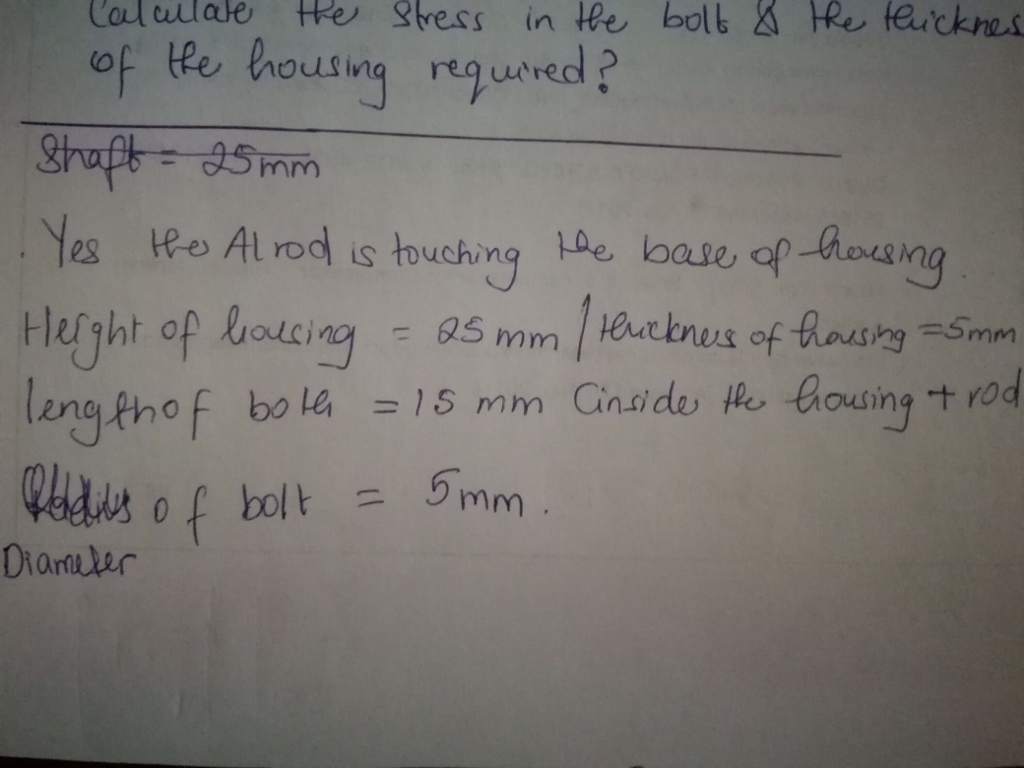 Calculate the stress in the bolt & the thicknes
of the housing required?
Shaft = 25mm
. Yes the Al rod is touching the base of housing.
Height of housing = 25 mm / thickness of housing =5mm
length of bolt = 15 mm (inside the housing + rod
of bolt = 5mm.
Diameter